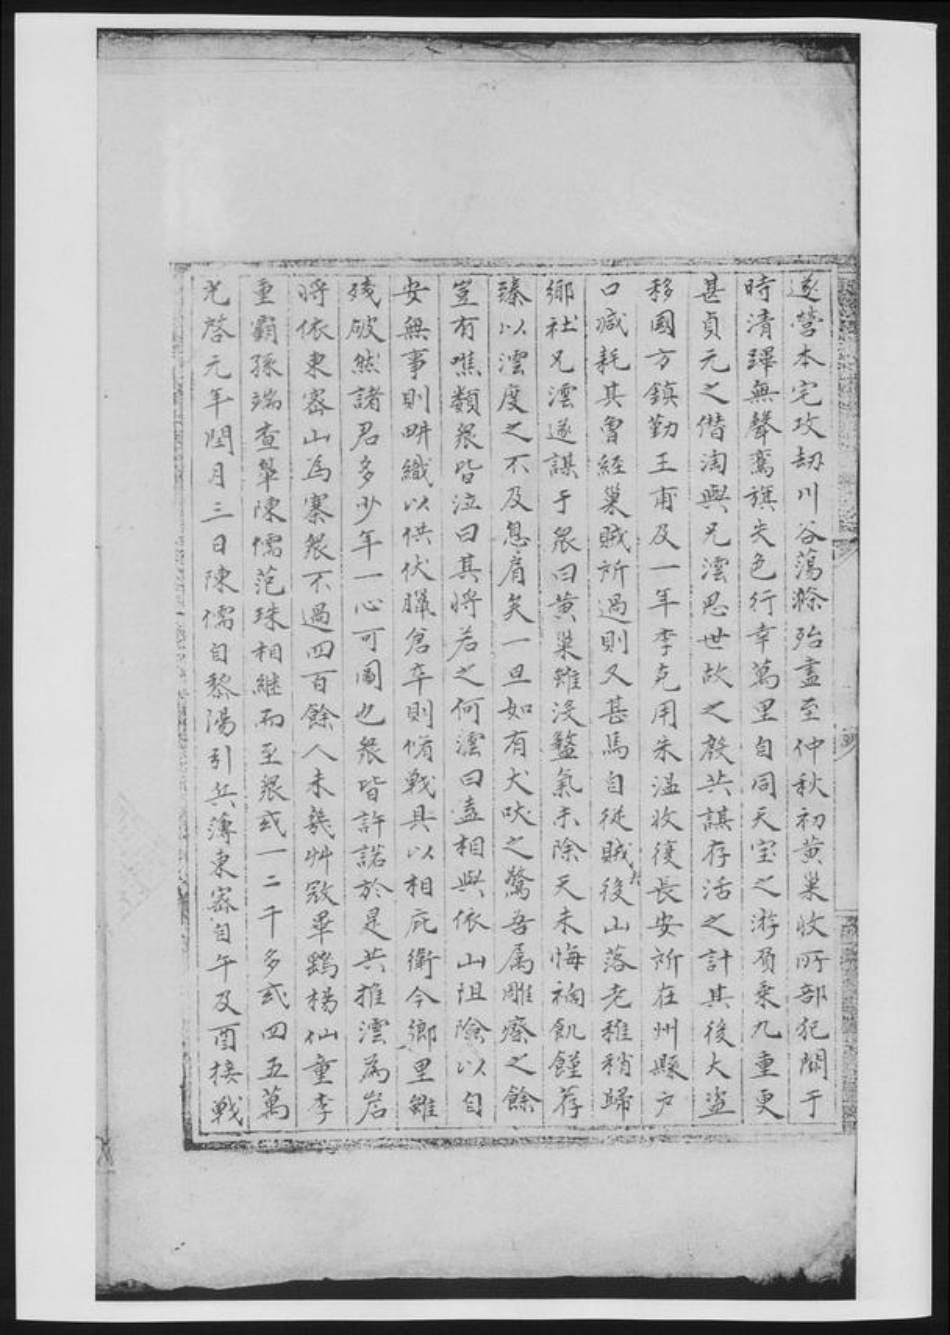 遂營本宅攻刼川谷蕩滌殆盡至仲秋初黄巢收所部犯関于
時清蹕無聲鸞旗失色行幸萬里自同天宝之游頋乗九重更
甚貞元之僣洶與兄澐思世故之殷共謀存活之計其後大盗
移國方鎮勤王甫及一年李克用朱温收復長安所在州縣户
口减耗其曾經巢賊所過則又甚焉自從賊後山落老稚稍歸
鄉社兄澐遂謀于衆曰黄巢雖没盭氣未除天未悔禍飢饉荐
臻以澐度之不及息肩矣一旦如有犬吠之驚吾属雕瘵之餘
豈有噍類衆皆泣曰其将若之何澐曰盍相與依山阻險以自
安無事則畊織以供伏臘倉卒則脩戰具以相庇衛今鄉里雖
残破然諸君多少年一心可圖也衆皆許諾於是共推澐為岩
将依東密山爲寨衆不過四百餘人未幾艸寇畢鷂楊仙童李
重霸孫端查皋陳儒范珠相継而至衆或一二千多或四五萬
光啓元年閏月三日陳儒自黎陽引兵薄東密自午及酉接戰